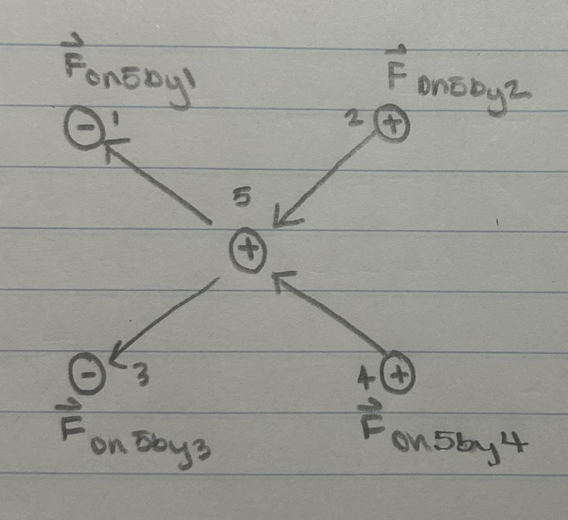 F⃗ on5by1
F⃗ on5by2
- 1
2 +
5
+
- 3
4 +
F⃗ on5by3
F⃗ on5by4